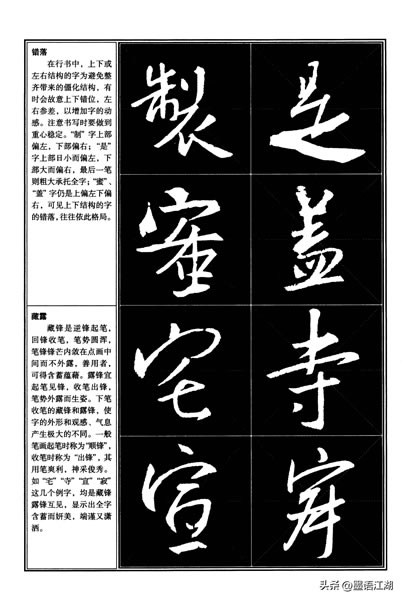 错落
在行书中，上下或
左右结构的字为避免整
齐带来的僵化结构，有
时会故意上下错位，左
右参差，以增加字的动
感。注意书写时要做到
重心稳定。“制”字上部
偏左，下部偏右；“是”
字上部日小而偏左，下
部大而偏右，最后一笔
则粗大承托全字；“蜜”、
“盖”字仍是上偏左下偏
右，可见上下结构的字
的错落，往往依此格局。
製 是
蜜 盖
藏露
藏锋是逆锋起笔，
回锋收笔，笔势圆浑，
笔锋锋芒内敛在点画中
间而不外露，善用者，
可得含蓄蕴藉。露锋宜
起笔见锋，收笔出锋，
笔势外露而生姿。下笔
收笔的藏锋和露锋，使
字的外形和观感、气息
产生极大的不同。一般
笔画起笔时称为“顺锋”，
收笔时称为“出锋”，其
用笔爽利，神采俊秀。
如“宅”“寺”“宣”“寂”
这几个例字，均是藏锋
露锋互见，显示出全字
含蓄而妍美，端谨又潇
洒。
宅 寺
宣
头条 @墨语江湖